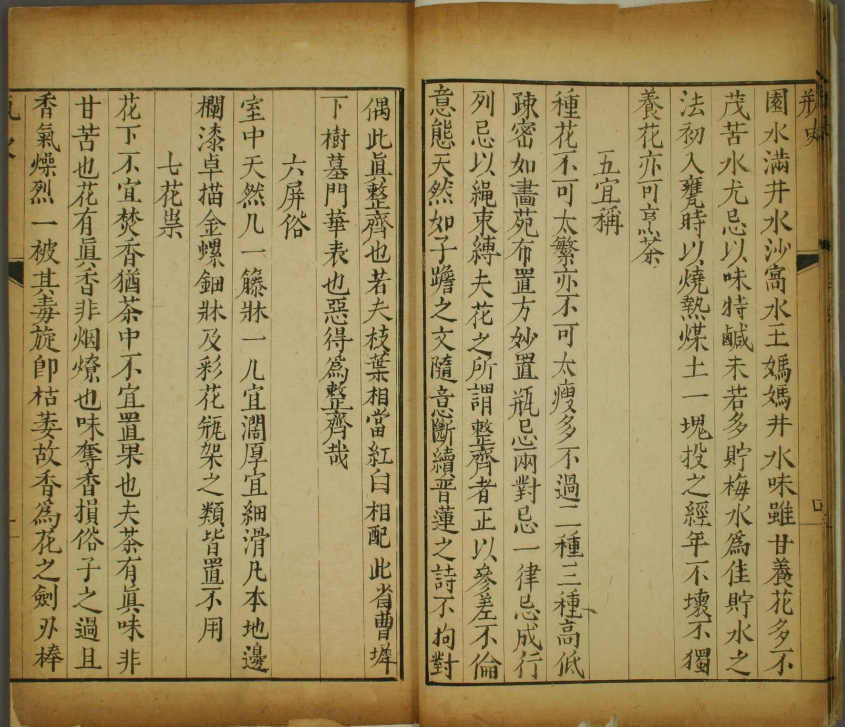 瓶史
園水滿井水沙窩水王媽媽井水味雖甘養花多不
茂苦水尤忌以味特鹹未若多貯梅水爲佳貯水之
法初入甕時以燒熱煤土一塊投之經年不壞不獨
養花亦可烹茶
五宜稱
種花不可太繁亦不可太瘦多不過二種三種高低
疎密如畫苑布置方妙置瓶忌兩對忌一律忌成行
列忌以繩束縛夫花之所謂整齊者正以參差不倫
意態天然如子瞻之文隨意斷續青蓮之詩不拘對
偶此眞整齊也若夫枝葉相當紅白相配此省曹墀
下樹墓門華表也惡得爲整齊哉
六屏俗
室中天然几一籐牀一几宜濶厚宜細滑凡本地邊
欄漆卓描金螺鈿牀及彩花瓶架之類皆置不用
七花祟
花下不宜焚香猶茶中不宜置果也夫茶有眞味非
甘苦也花有眞香非烟燎也味奪香損俗子之過且
香氣燥烈一被其毒旋卽枯萎故香爲花之劍刃棒